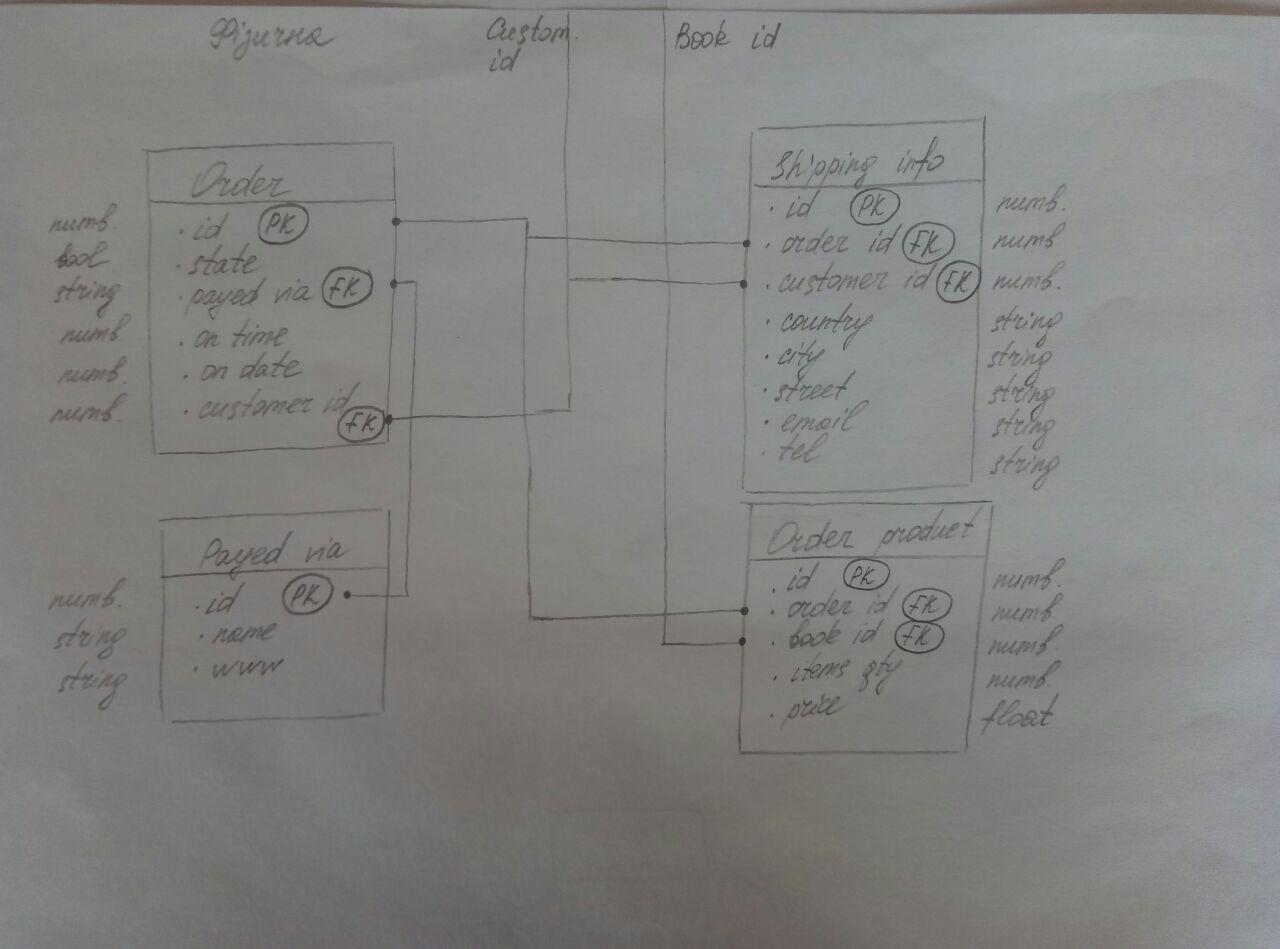 Фізична
Custom.
id
Book id
Order
numb. · id PK
bool · state
string · payed via FK
numb. · on time
numb. · on date
numb. · customer id
FK
Payed via
numb. · id PK
string · name
string · www
Shipping info
· id PK numb.
· order id FK numb
· customer id FK numb.
· country string
· city string
· street string
· email string
· tel string
Order product
· id PK numb.
· order id FK numb.
· book id FK numb.
· items qty numb.
· price float